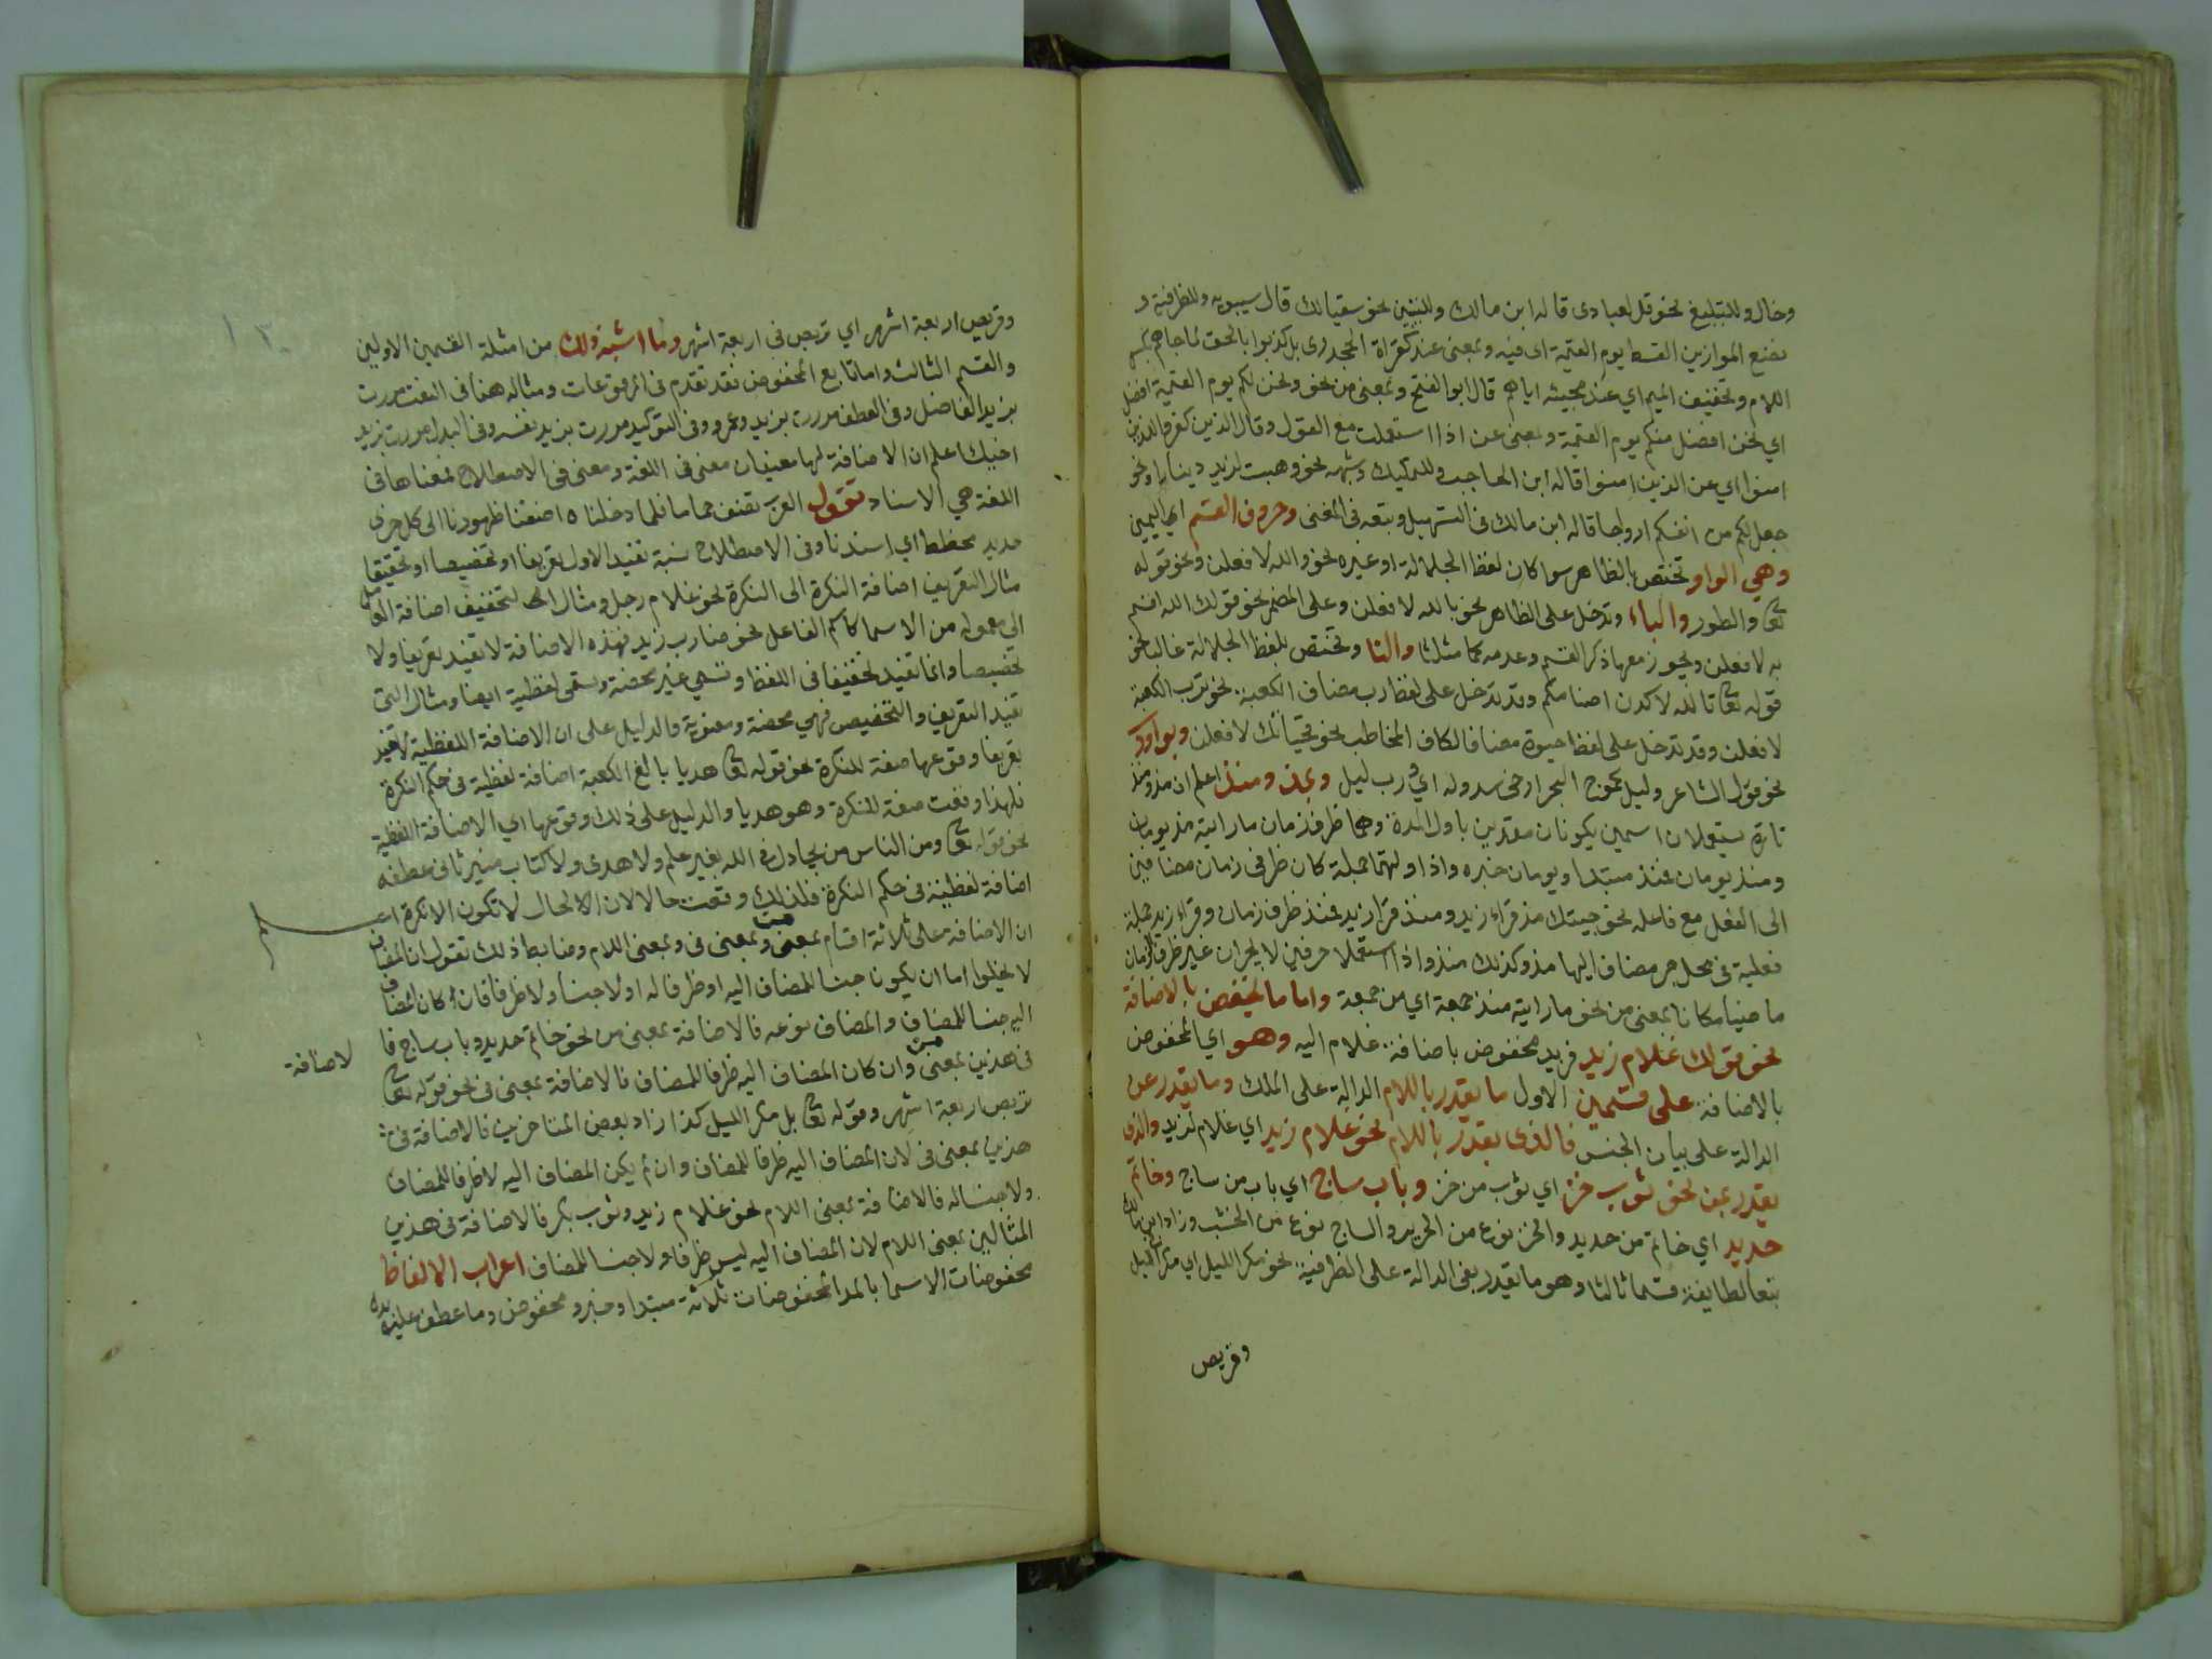 وخال وللتبليغ نحو قل لعبادى قاله ابن مالك وللتبيين نحو سقيا لك قال سيبويه وللظرفية و
نضع الموازين القسط يوم القيمة اى فيه وبمعنى عند كقراة الجحدرى بل كذبوا بالحق لما جاهم بكسر
اللام وتخفيف الميم اي عند مجيئه اياهم قال ابو الفتح وبمعنى من نحو ونحن لكم يوم القيمة افضل
اي نحن افضل منكم يوم القيمة وبمعنى عن اذا استعملت مع القول وقال الذين كفروا للذين
امنوا اي عن الذين امنوا قاله ابن الحاجب وللتمليك وشبهه نحو وهبت لزيد دينارا ونحو
جعل لكم من انفسكم ازواجا قاله ابن مالك فى التسهيل وتبعه فى المغنى وحروف القسم اي اليمين
وهي الواو وتختص بالظاهر سوا كان لفظ الجلالة او غيره نحو والله لافعلن ونحو قوله
تعا والطور والباء وتدخل على الظاهر نحو بالله لافعلن وعلى المضمر نحو قولك الله اقسم
به لافعلن ويجوز معها ذكر القسم وعدمه كما مثلنا والتا وتختص بلفظ الجلالة غالبا نحو
قوله تعا تالله لاكيدن اصنامكم وقد تدخل على لفظ رب مضاف الكعبة نحو ترب الكعبة
لافعلن وقد تدخل على لفظ حيوة مضافا لكاف المخاطب نحو تحياتك لافعلن وبواو رب
نحو قول الشاعر وليل كموج البحر ارخى سدوله اي ورب ليل وبمذ ومنذ اعلم ان مذ ومنذ
تارة يستعملان اسمين يكونان مقدرين باول المدة وهما ظرف زمان ما رايته مذ يومان
ومنذ يومان فمنذ مبتدا ويومان خبره واذا اوليتهما جملة كان ظرفى زمان مضافين
الى الفعل مع فاعله نحو جيتك مذ قراء زيد ومنذ قرا زيد فمنذ ظرف زمان وقراء زيد جملة
فعلية فى محل جر مضاف اليها مذ وكذلك منذ واذا استعملا حرفين لا يجران غير ظرف الزمان
ماضيا مكانا بمعنى من نحو ما رايته منذ جمعة اي من جمعة واما ما يخفض بالاضافة
نحو قولك غلام زيد فزيد مخفوض باضافة غلام اليه وهو اي المخفوض
بالاضافة على قسمين الاول ما يقدر باللام الدالة على الملك وما يقدر عن
الدالة على بيان الجنس فالذى يقدر باللام نحو غلام زيد اي غلام لزيد والذى
يقدر بمن نحو ثوب خز اي ثوب من خز وباب ساج اي باب من ساج وخاتم
حديد اي خاتم من حديد والخز نوع من الحرير والساج نوع من الخشب وزاد ابن مالك
تبعا لطايفة قسما ثالثا وهو ما يقدر بفى الدالة على الظرفية نحو مكر الليل اي مكر فى الليل
وتربص
وتربص اربعة اشهر اي تربص فى اربعة اشهر وما اشبه ذلك من امثلة القسمين الاولين
والقسم الثالث واما تابع المخفوض فقد تقدم فى المرفوعات ومثاله هنا فى النعت مررت
بزيد الفاضل وفى العطف مررت بزيد وعمرو وفى التوكيد مررت بزيد نفسه وفى البدل مررت بزيد
اخيك اعلم ان الاضافة لها معنيان معنى فى اللغة ومعنى فى الاصطلاح فمعناها فى
اللغة هي الاسناد تقول العرب فلما دخلناه اضفنا ظهورنا الى كل حرى
جديد مخطط اي اسندنا وفى الاصطلاح نسبة تفيد الاول تعريفا او تخصيصا او تخفيفا
مثال التعريف اضافة النكرة الى النكرة نحو غلام رجل ومثال التخفيف اضافة العامل
الى معموله من الاسما كاسم الفاعل نحو ضارب زيد فهذه الاضافة لا تفيد تعريفا ولا
تخصيصا وانما تفيد تخفيفا فى اللفظ وتسمى غير محضة وتسمى لفظية ايضا ومثال التى
تفيد التعريف والتخصيص فهي محضة ومعنوية والدليل على ان الاضافة اللفظية لا تفيد
تعريفا وقوعها صفة للنكرة نحو قوله تعا هديا بالغ الكعبة اضافة لفظية فى حكم النكرة
فلهذا وقعت صفة للنكرة وهو هديا والدليل على ذلك وقوعها اي الاضافة اللفظية
نحو قوله تعا ومن الناس من يجادل فى الله بغير علم ولا هدى ولا كتاب منير ثانى عطفه
اضافة لفظية فى حكم النكرة فلذلك وقعت حالا لان الحال لا تكون الا نكرة اعلم
ان الاضافة على ثلاثة اقسام بمعنى من وبمعنى فى وبمعنى اللام وضابط ذلك تقول ان المضاف
لا يخلوا اما ان يكونا جنسا للمضاف اليه او ظرفا له او لا جنسا ولا ظرفا فان كان المضاف
اليه جنسا للمضاف والمضاف نوعه فالاضافة بمعنى من نحو خاتم حديد وباب ساج فا
لاضافة
فى هذين بمعنى من وان كان المضاف اليه ظرفا للمضاف فالاضافة بمعنى فى نحو قوله تعا
تربص اربعة اشهر وقوله تعا بل مكر الليل كذا زاد بعض المتاخرين فالاضافة فى
هذين بمعنى فى لان المضاف اليه ظرفا للمضاف وان لم يكن المضاف اليه لا ظرفا للمضاف
ولا جنسا له فالاضافة بمعنى اللام نحو غلام زيد وثوب بكر فالاضافة فى هذين
المثالين بمعنى اللام لان المضاف اليه ليس ظرفا ولا جنسا للمضاف اعراب الالفاظ
مخفوضات الاسما المخفوضات ثلاثة مبتدا وخبر ومخفوض وما عطف عليه